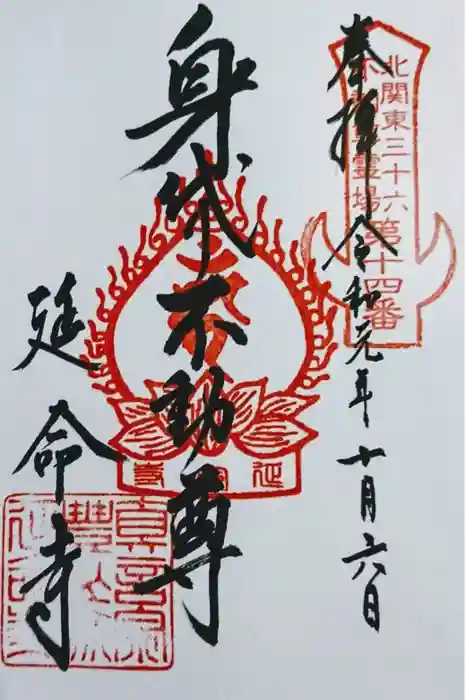 奉拝 令和元年十月六日
北関東三十六
不動尊霊場第十四番
身代不動尊
延命寺